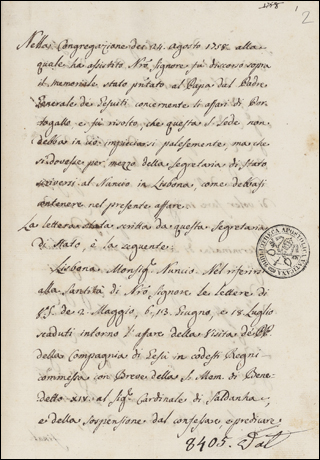 1758
2
Nella Congregazione dei 24. Agosto 1758. alla
quale ha assistito Nrō Signore fù discorso sopra
il memoriale stato pñtato al Papa dal Padre
Generale de Gesuiti concernente gl'affari di Por-
togallo, e fù risolto, che questa S. Sede, non
debba in ciò impicciarsi palesemente, ma che
si dovesse per mezzo della Segretaria di Stato
scriversi al Nunzio in Lisbona, come debbasi
contenere nel presente affare.
La lettera stata scritta da questa Segretaria
di Stato, è la seguente:
Lisbona Monsig.r Nunzio. Nel riferirsi
alla Santità di Nrō Signore le lettere di
V.S. de 2. Maggio, 6, 13. Giugno, e 18 Luglio
scaduti intorno l'affare della Visita de PP.
della Compagnia di Gesù in codesti Regni
commessa con Breve della S. Mem. di Bene-
detto XIV. al Sig.r Cardinale di Saldanha,
e della sospensione dal confessare, e predicare
8405. Lat